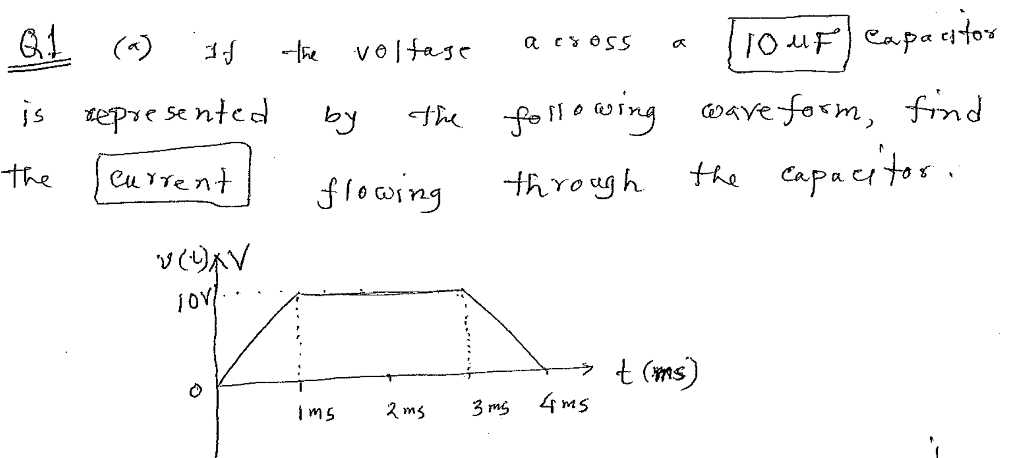 Q1 (a) If the voltage across a 10 uF capacitor
is represented by the following waveform, find
the current flowing through the capacitor.
v(t) V
10V
0
t (ms)
1ms 2ms 3ms 4ms